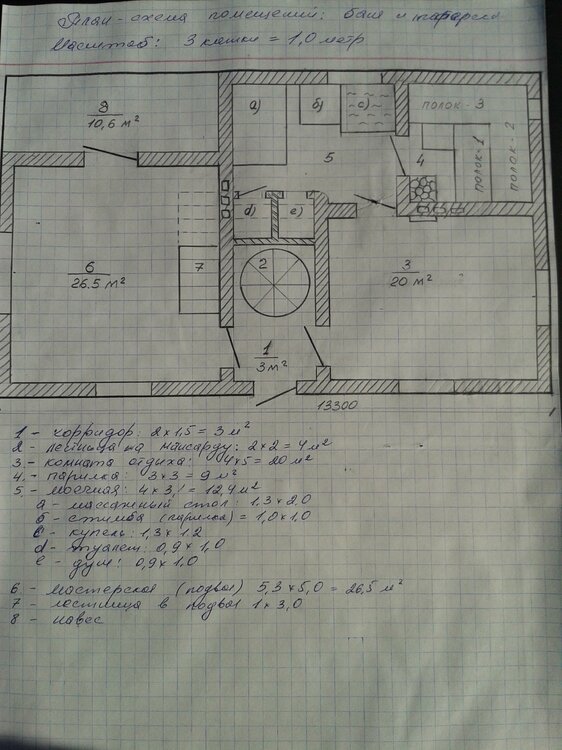 План-схема помещений: баня и
Масштаб: 3 клетки = 1,0 метр
8
10,6 м²
а)
б)
с)
полок-3
5
4
полок-1
полок-2
d)
е)
6
26.5 м²
7
2
3
20 м²
1
3 м²
13300
1 - корридор: 2×1,5 = 3 м²
2 - лестница на мансарду: 2×2 = 4 м²
3 - комната отдыха: 4×5 = 20 м²
4 - парилка: 3×3 = 9 м²
5 - моечная: 4×3,1 = 12,4 м²
а - массажный стол: 1,3×2,0
б - (парилка) = 1,0×1,0
с - купель: 1,3×1.2
d - туалет: 0,9×1,0
е - душ: 0,9×1.0
6 - мастерская (подвал) 5,3×5,0 = 26,5 м²
7 - лестница в подвал 1×3,0
8 - навес